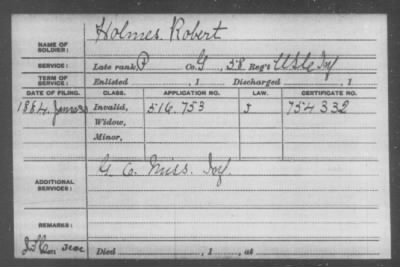 NAME OF SOLDIER: Holmes, Robert
SERVICE: Late rank, P Co. G, 58 Reg't U S C Inf
TERM OF SERVICE: Enlisted , 1 Discharged , 1
DATE OF FILING. CLASS. APPLICATION NO. LAW. CERTIFICATE NO.
Invalid, 516.753 J 754332
Widow,
Minor,
ADDITIONAL SERVICES: G. 6. Miss. Inf.
REMARKS:
Died , 1 , at